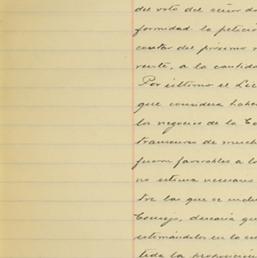 del voto del señor d
formidad. la petició
contar del próximo
rente, a la cantida
Por último el Lic
que considera haber
los negocios de la Co
transcurso de much
fueron favorables a l
no estima necesario
tre las que se
Consejo, desearía que
estimándolos en lo
tida la proposición